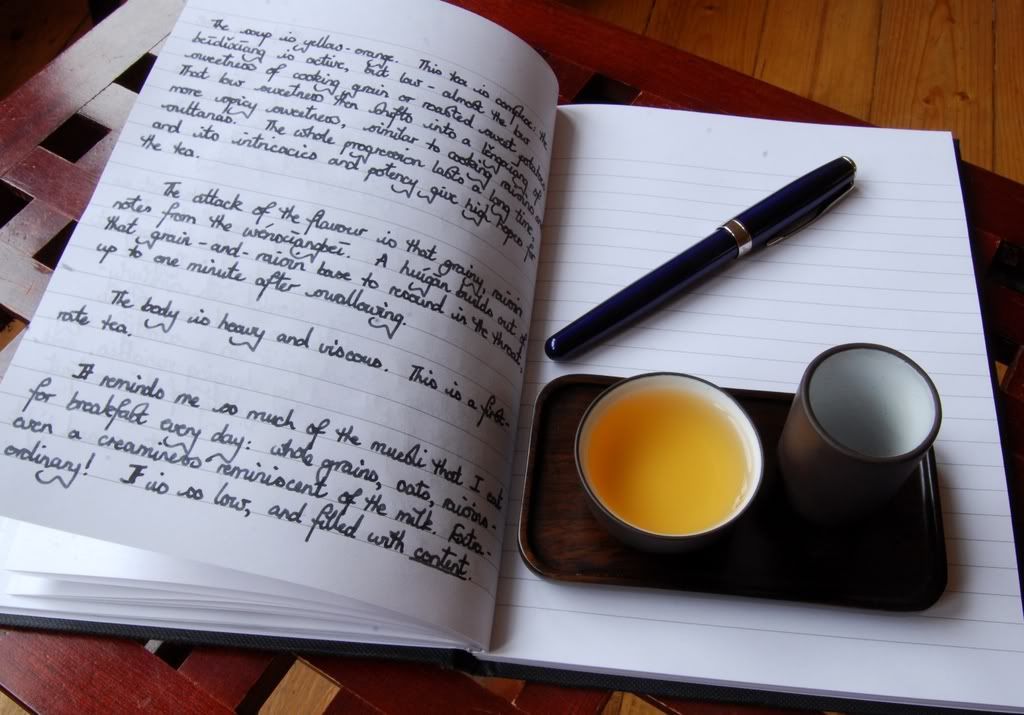 The soup is yellow-orange. This tea is complex: the
bēidǐxiāng is active, but low - almost the low
sweetness of cooking grain or roasted sweet potatoes.
That low sweetness then shifts into a lěngxiāng of
more spicy sweetness, similar to cooking raisins or
sultanas. The whole progression lasts a long time,
and its intricacies and potency give high hopes for
the tea.
The attack of the flavour is that grainy, raisin
notes from the wénxiāngbēi. A húigān builds out of
that grain-and-raisin base to resound in the throat,
up to one minute after swallowing.
The body is heavy and viscous. This is a first-
rate tea.
It reminds me so much of the muesli that I eat
for breakfast every day: whole grains, oats, raisins -
even a creaminess reminiscent of the milk. Extra-
ordinary! It is so low, and filled with content.